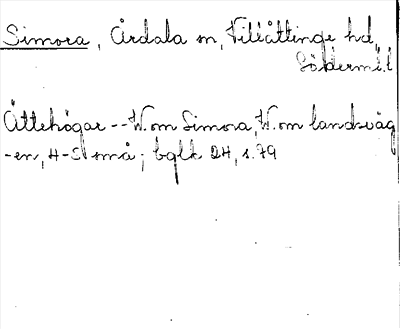 Simora, Årdala sn, Villåttinge hd,
Söderml
Ättehögar -- W. om Simora, W. om landsväg
-en, 4-5 små; bglk 24, s. 79